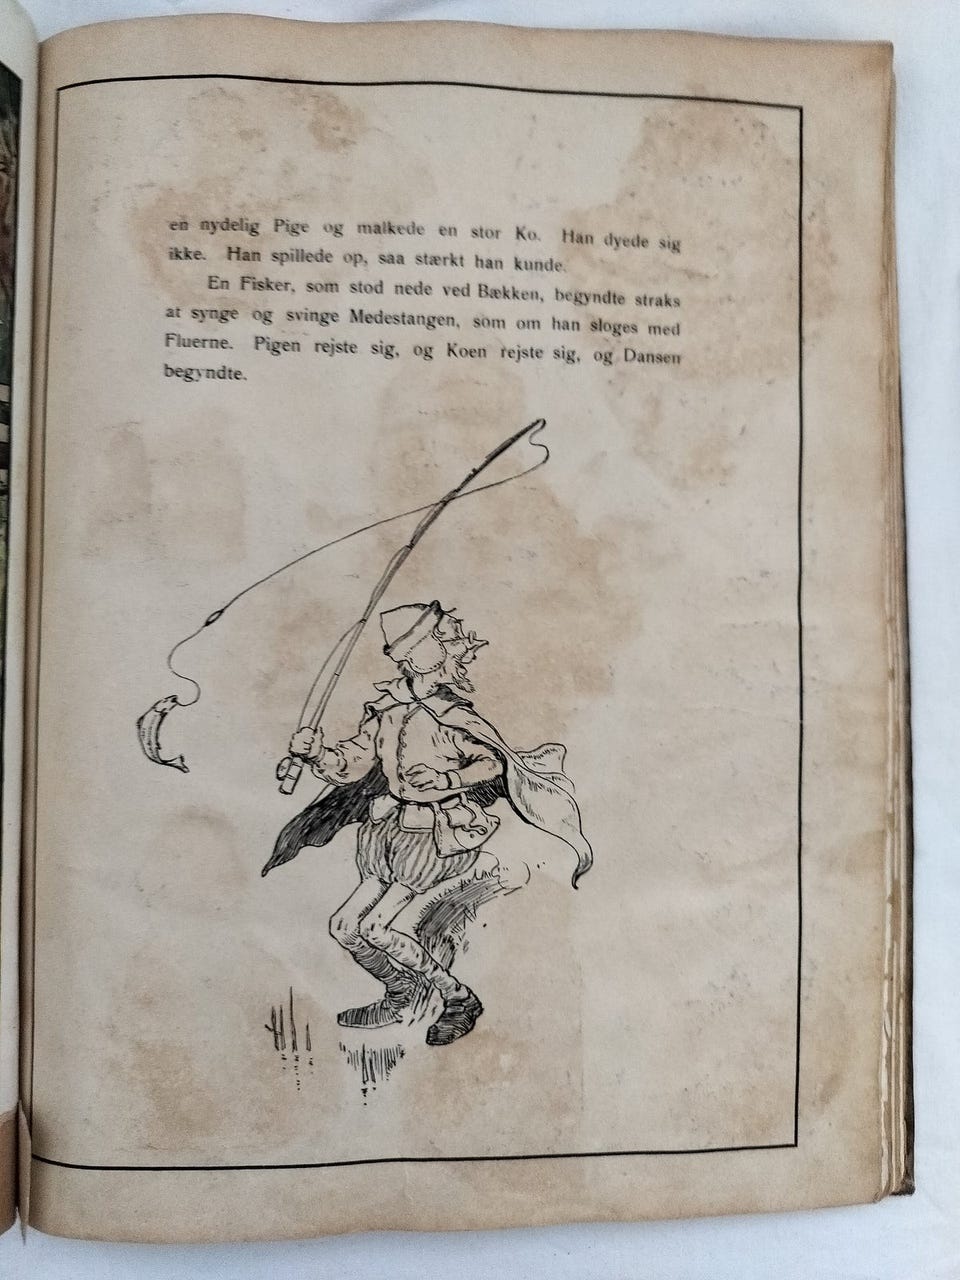 en nydelig Pige og malkede en stor Ko. Han dyede sig
ikke. Han spillede op, saa stærkt han kunde.
En Fisker, som stod nede ved Bækken, begyndte straks
at synge og svinge Medestangen, som om han sloges med
Fluerne. Pigen rejste sig, og Koen rejste sig, og Dansen
begyndte.